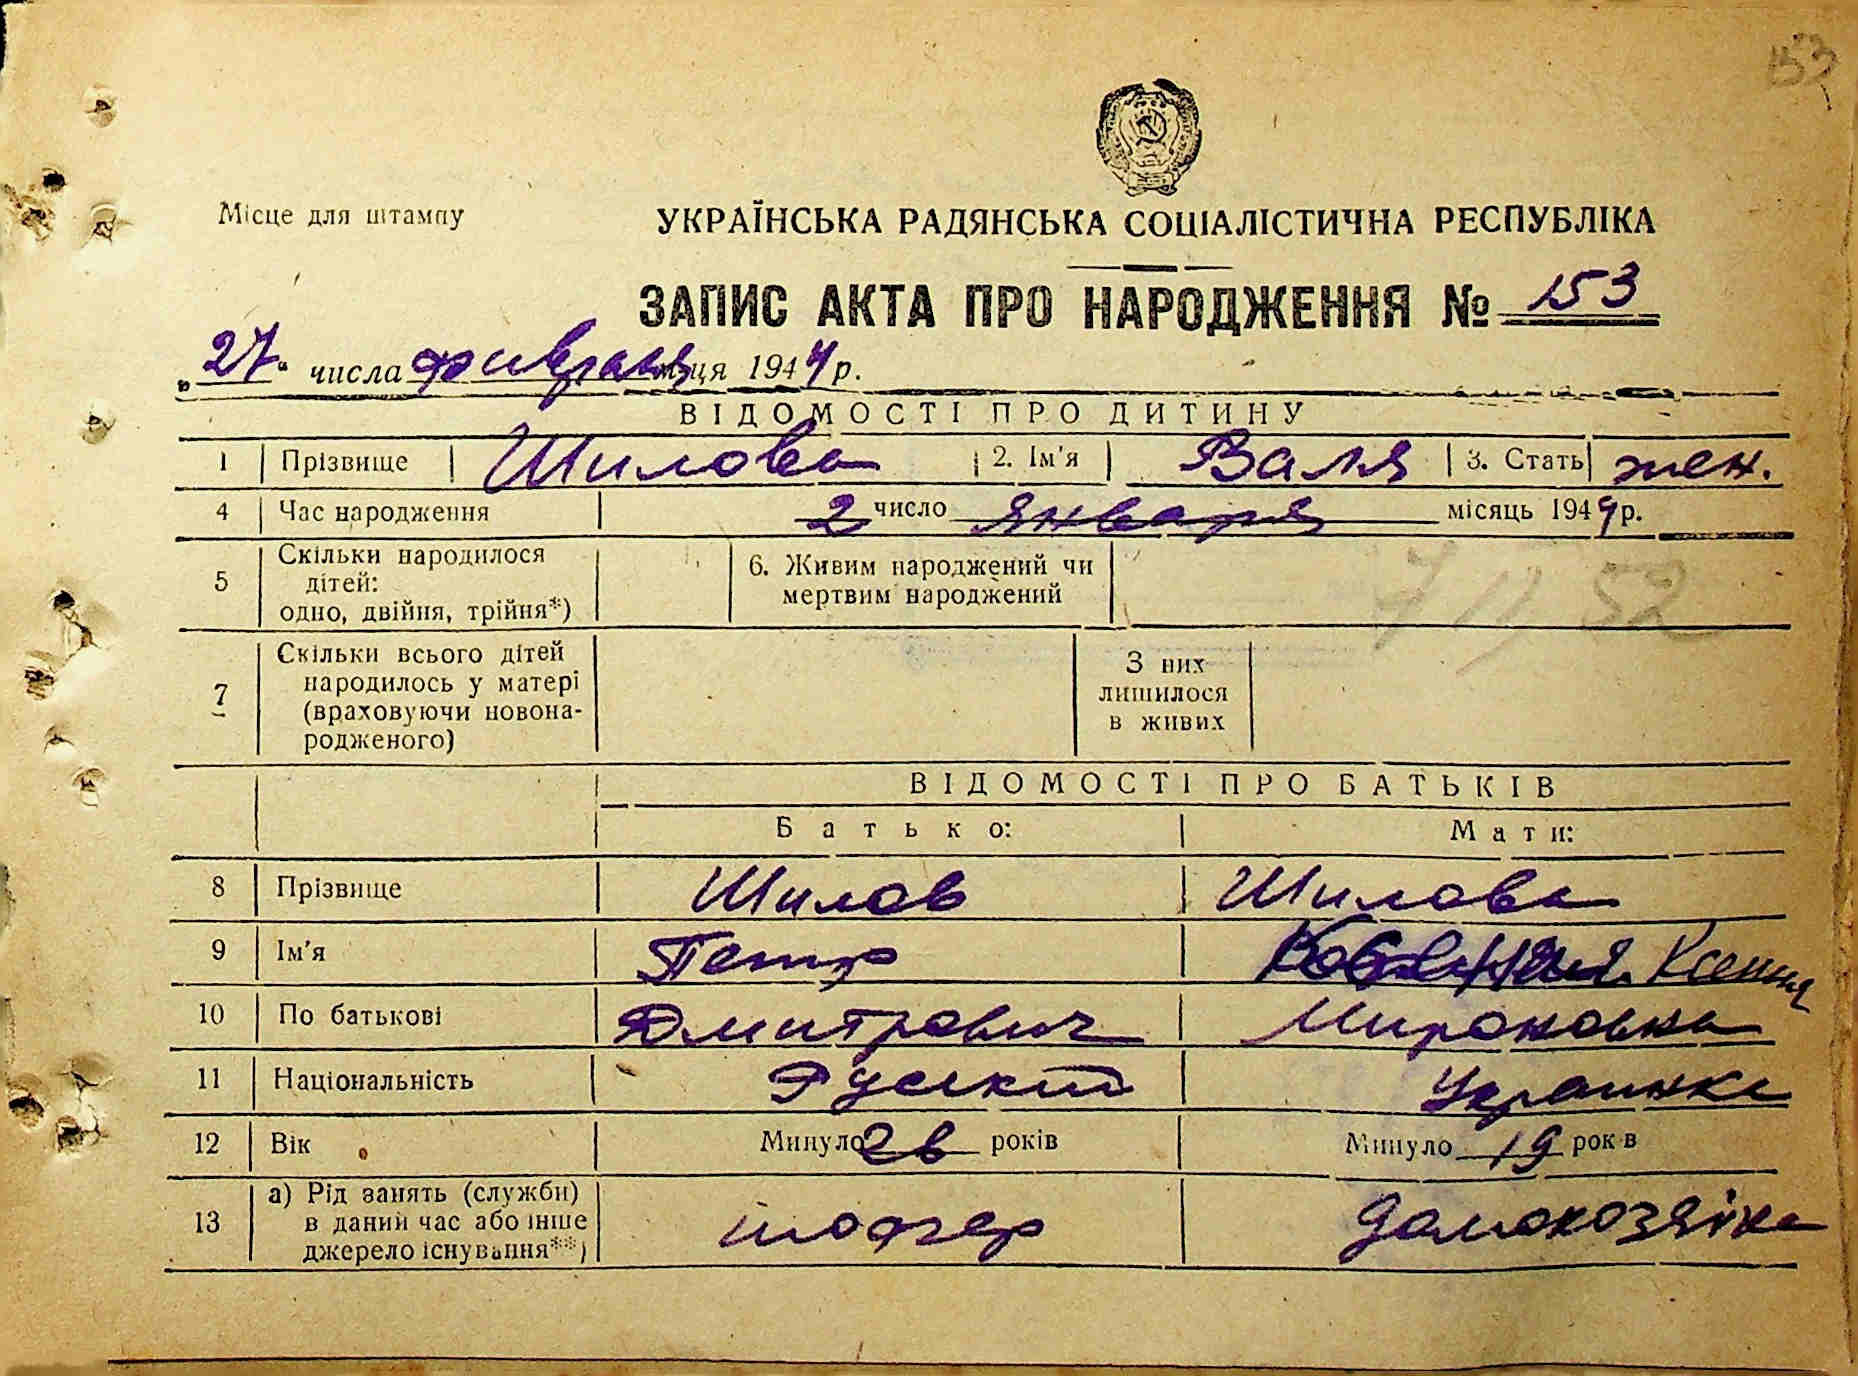 153
Місце для штампу
УКРАЇНСЬКА РАДЯНСЬКА СОЦІАЛІСТИЧНА РЕСПУБЛІКА
ЗАПИС АКТА ПРО НАРОДЖЕННЯ № 153
„27“ числа февраля м-ця 1944 р.
ВІДОМОСТІ ПРО ДИТИНУ
1 Прізвище Шилова 2. Ім'я Валя 3. Стать жен.
4 Час народження 2 число января місяць 1944 р.
5 Скільки народилося дітей: одно, двійня, трійня*) 6. Живим народжений чи мертвим народжений
7 11 52
7 Скільки всього дітей народилось у матері (враховуючи новонародженого) З них лишилося в живих
ВІДОМОСТІ ПРО БАТЬКІВ
Батько: Мати:
8 Прізвище Шилов Шилова
9 Ім'я Петр Ксения
10 По батькові Дмитрович Мироновна
11 Національність Руский Украинка
12 Вік Минуло 26 років Минуло 19 років
13 а) Рід занять (служби) в даний час або інше джерело існування**) шофер домохозяйка